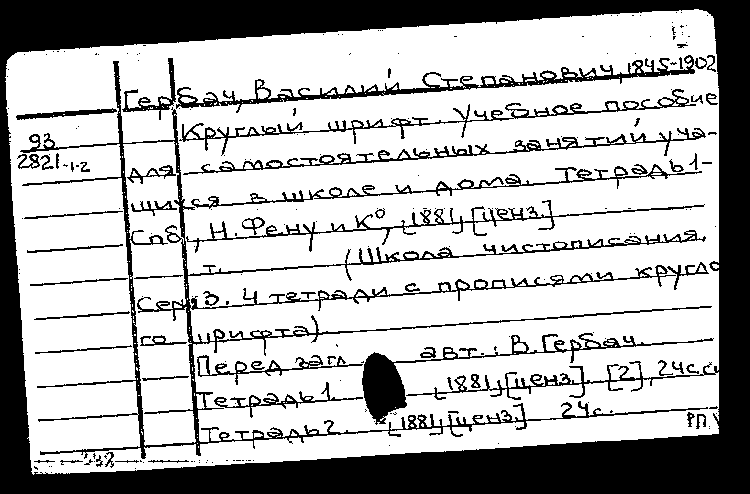 Гербач, Василий Степанович, 1845-1902
93
2821-1-2
Круглый шрифт. Учебное пособие
для самостоятельных занятий уча-
щихся в школе и дома. Тетрадь 1-
Спб, Н. Фену и К⁰, 1881, [ценз.]
т. (Школа чистописания.
Сер. 3. 4 тетради с прописями кругло
го шрифта)
Перед загл авт.: В. Гербач.
Тетрадь 1. 1881, [ценз.]. [2], 24 с.
Тетрадь 2. 1881, [ценз.] 24 с.
РП